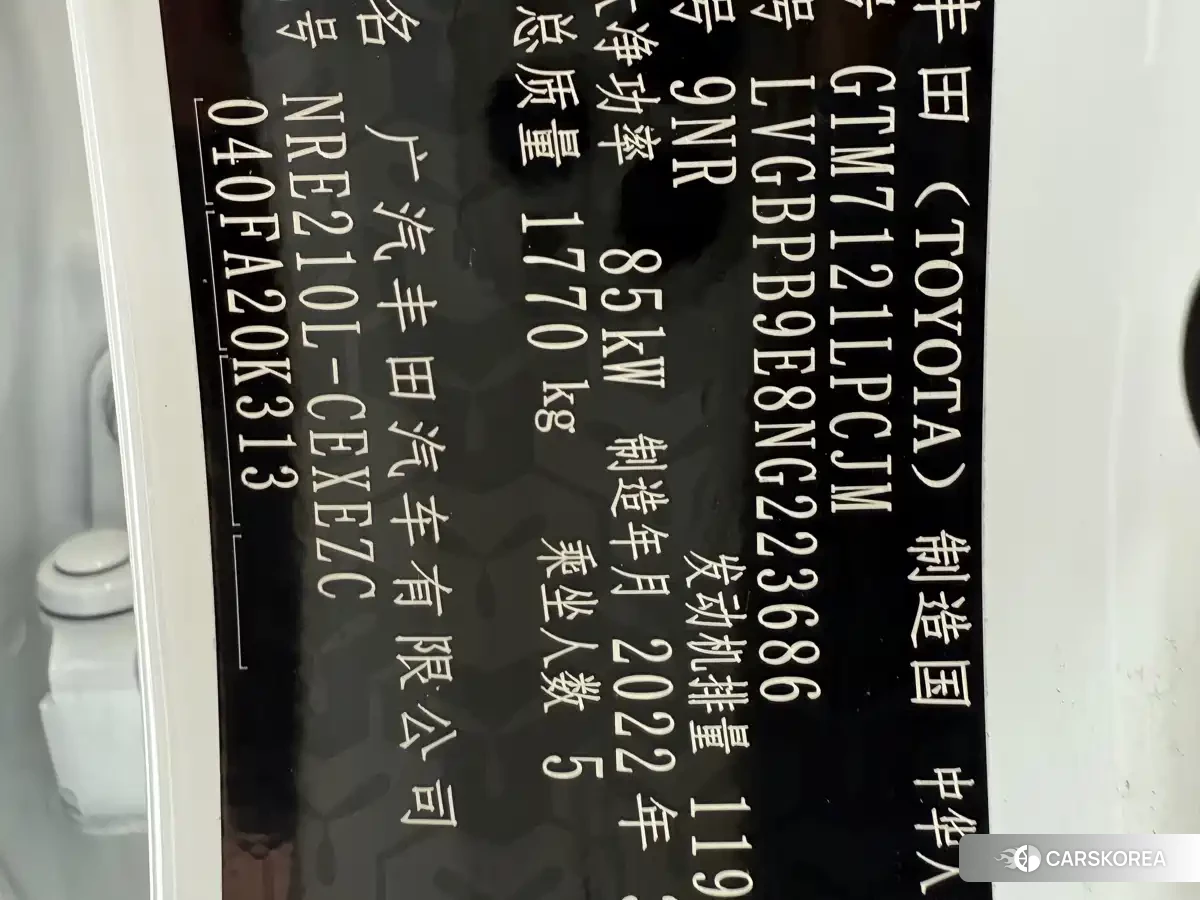 丰田 (TOYOTA) 制造国 中华人
号 GTM7121LPCJM
号 LVGBPB9E8NG223686
号 9NR 发动机排量 119
净功率 85kW 制造年月 2022 年
总质量 1770 kg 乘坐人数 5
名 广汽丰田汽车有限公司
号 NRE210L-CEXEZC
040FA20K313
CARSKOREA